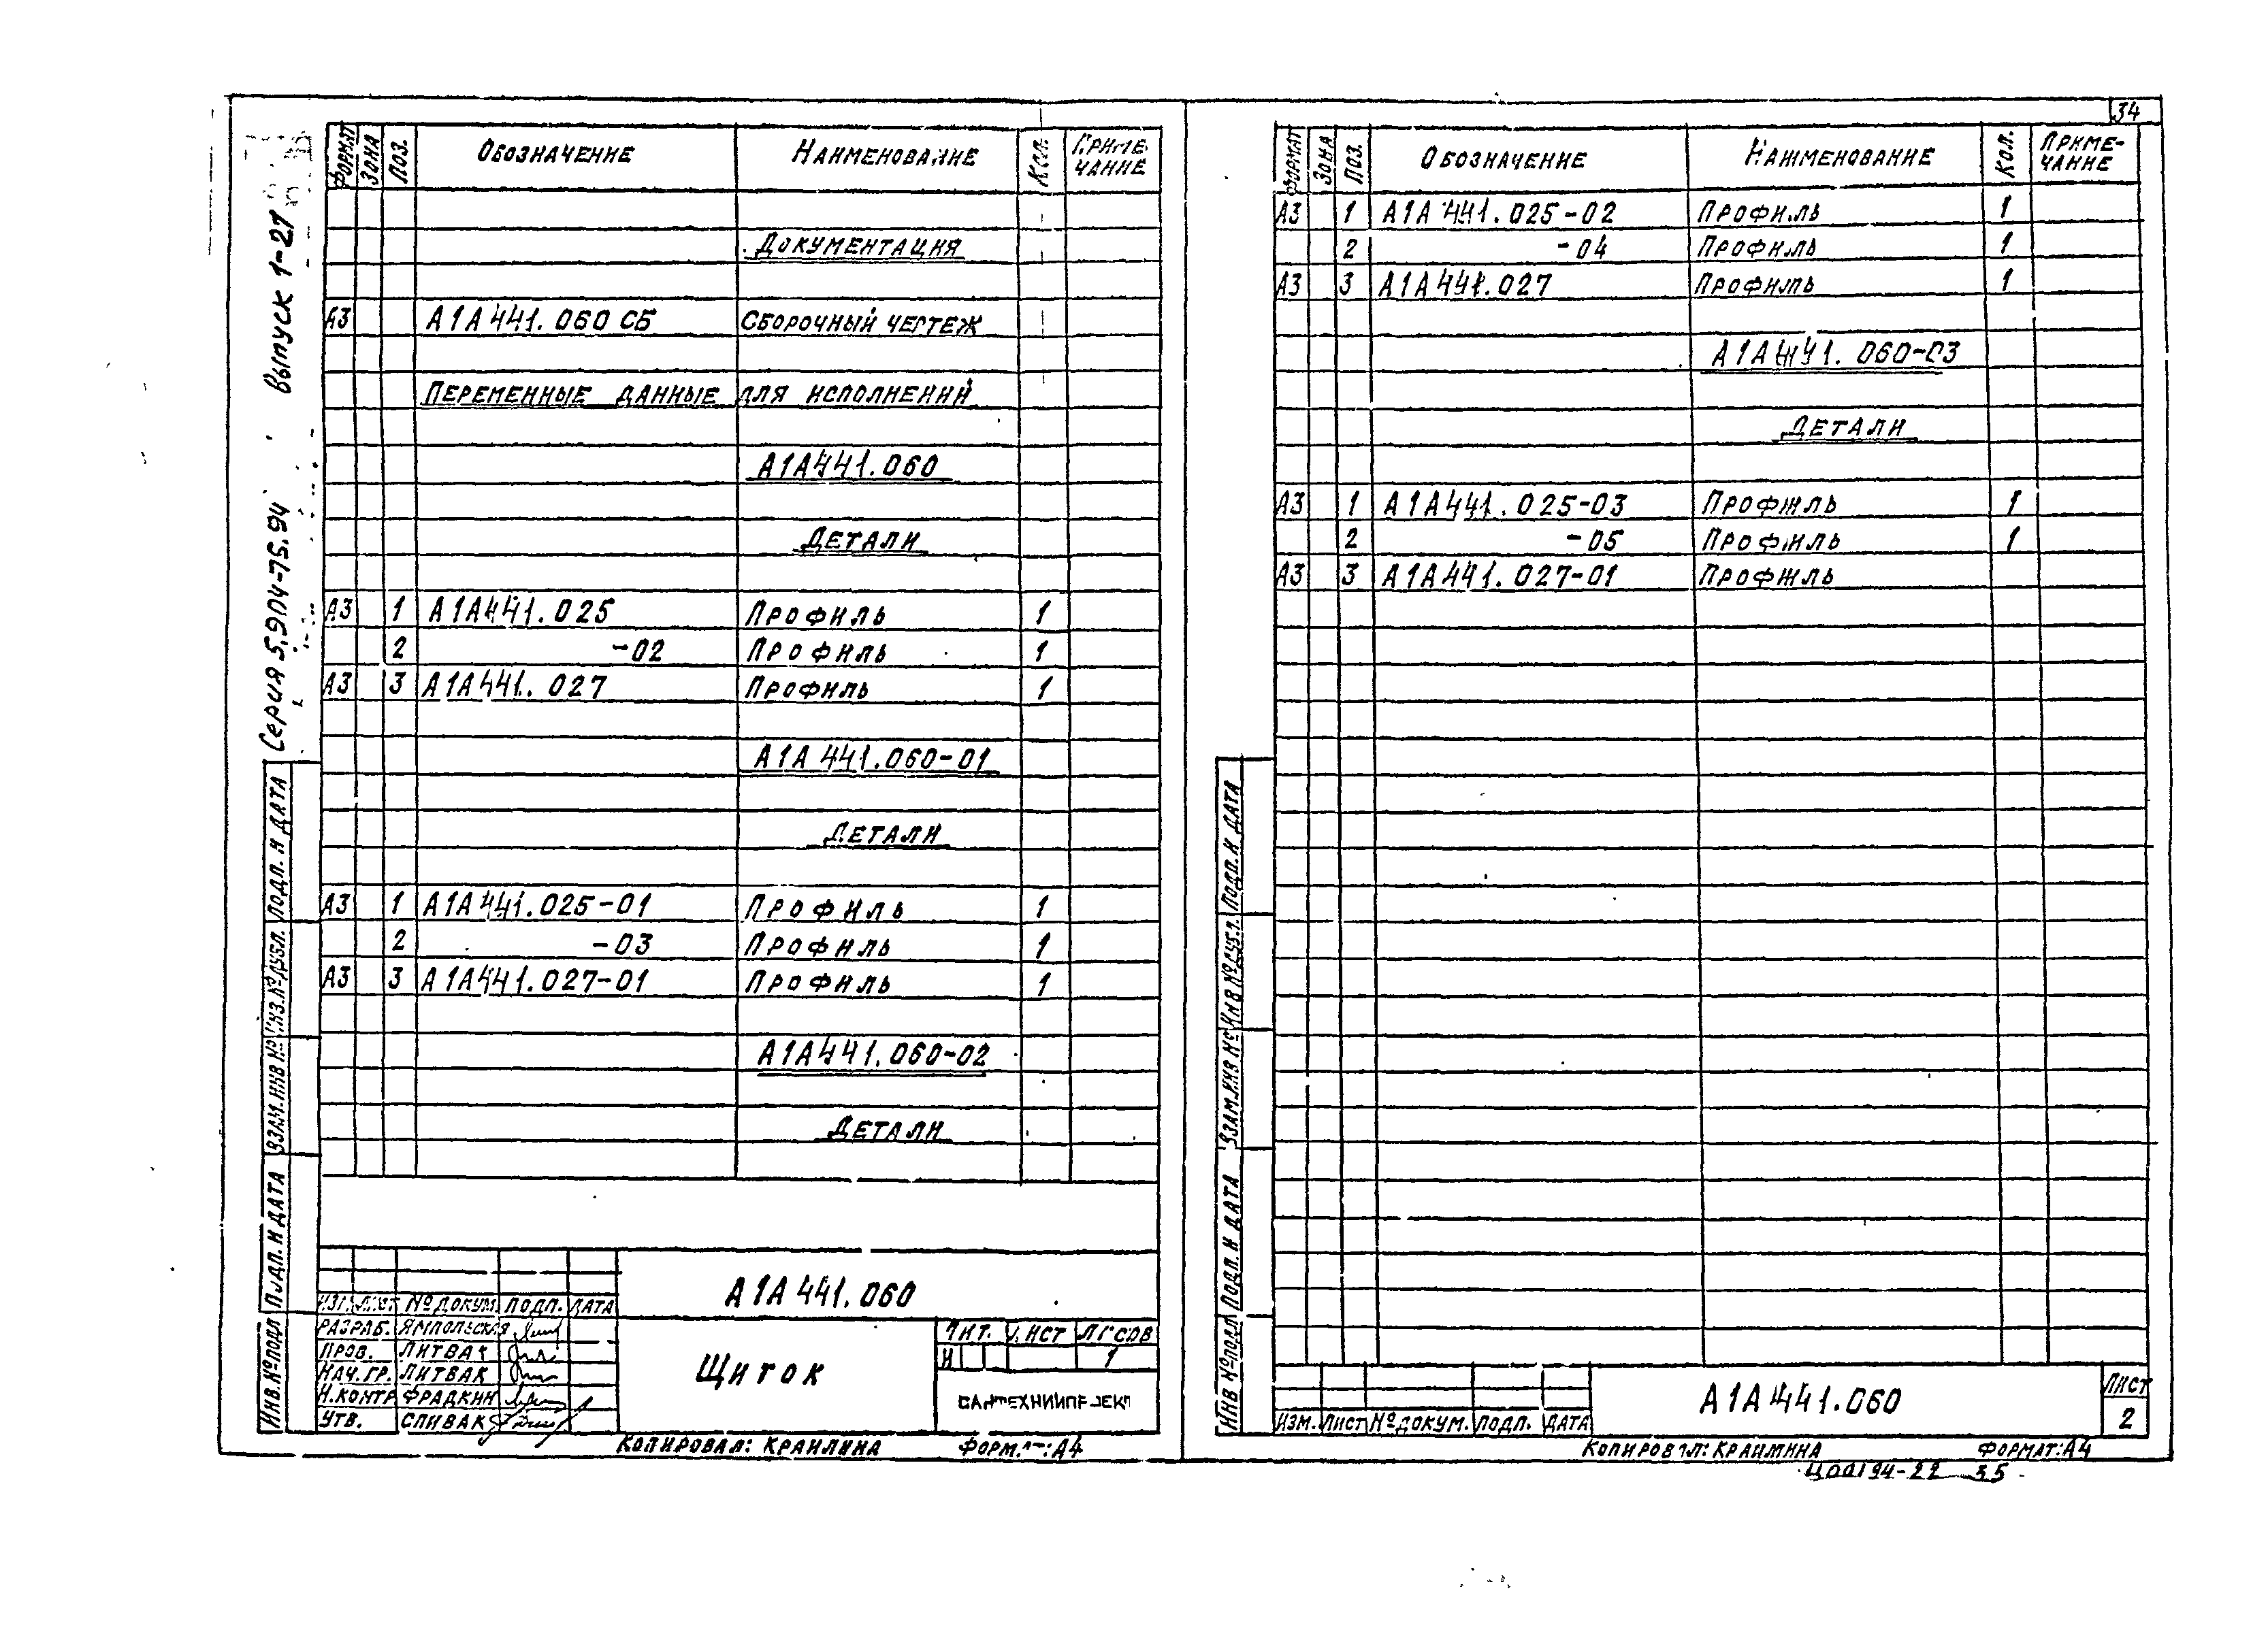 34
Выпуск 1-27
Серия 5.904-75.94
Формат Зона Поз. Обозначение Наименование Кол. Примечание
Документация
А3 А1А441.060 СБ Сборочный чертеж
Переменные данные для исполнений
А1А441.060
Детали
А3 1 А1А441.025 Профиль 1
2 -02 Профиль 1
А3 3 А1А441.027 Профиль 1
А1А441.060-01
Детали
А3 1 А1А441.025-01 Профиль 1
2 -03 Профиль 1
А3 3 А1А441.027-01 Профиль 1
А1А441.060-02
Детали
Подп. и дата
Инв.№дубл.
Взам.инв №
Подп. и дата
Инв.№подл
А1А441.060
Изм. Лист №докум. Подп. Дата
Разраб. Ямпольская
Пров. Литвак
Нач.гр. Литвак
Н.контр Фрадкин
Утв. Спивак
Щиток
Лит. Лист Листов
И 1
Сантехниипроект
Копировал: Краилина Формат: А4
Формат Зона Поз. Обозначение Наименование Кол. Примечание
А3 1 А1А441.025-02 Профиль 1
2 -04 Профиль 1
А3 3 А1А441.027 Профиль 1
А1А441.060-03
Детали
А3 1 А1А441.025-03 Профиль 1
2 -05 Профиль 1
А3 3 А1А441.027-01 Профиль
Подп. и дата
Инв №дубл.
Взам.инв №
Подп. и дата
Инв №подл
Изм. Лист №докум. Подп. Дата
А1А441.060
Лист
2
Копировал: Краилина Формат: А4
Ц00194-22 35